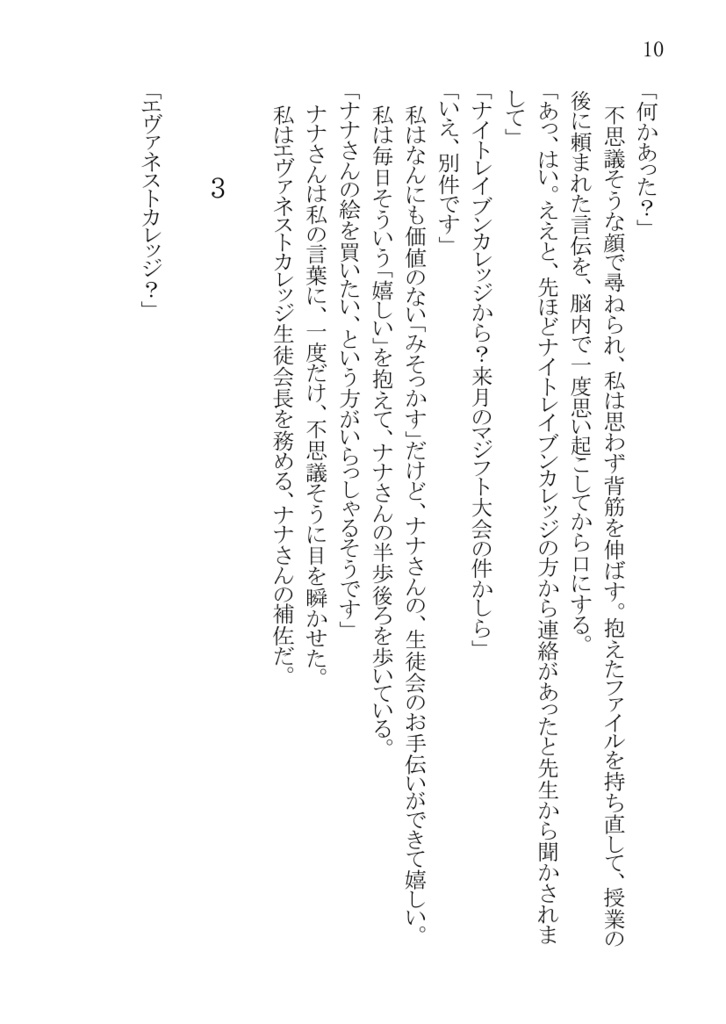 10
「何かあった？」
不思議そうな顔で尋ねられ、私は思わず背筋を伸ばす。抱えたファイルを持ち直して、授業の
後に頼まれた言伝を、脳内で一度思い起こしてから口にする。
「あっ、はい。ええと、先ほどナイトレイブンカレッジの方から連絡があったと先生から聞かされま
して」
「ナイトレイブンカレッジから？来月のマジフト大会の件かしら」
「いえ、別件です」
私はなんにも価値のない「みそっかす」だけど、ナナさんの、生徒会のお手伝いができて嬉しい。
私は毎日そういう「嬉しい」を抱えて、ナナさんの半歩後ろを歩いている。
「ナナさんの絵を買いたい、という方がいらっしゃるそうです」
ナナさんは私の言葉に、一度だけ、不思議そうに目を瞬かせた。
私はエヴァネストカレッジ生徒会長を務める、ナナさんの補佐だ。
3
「エヴァネストカレッジ？」